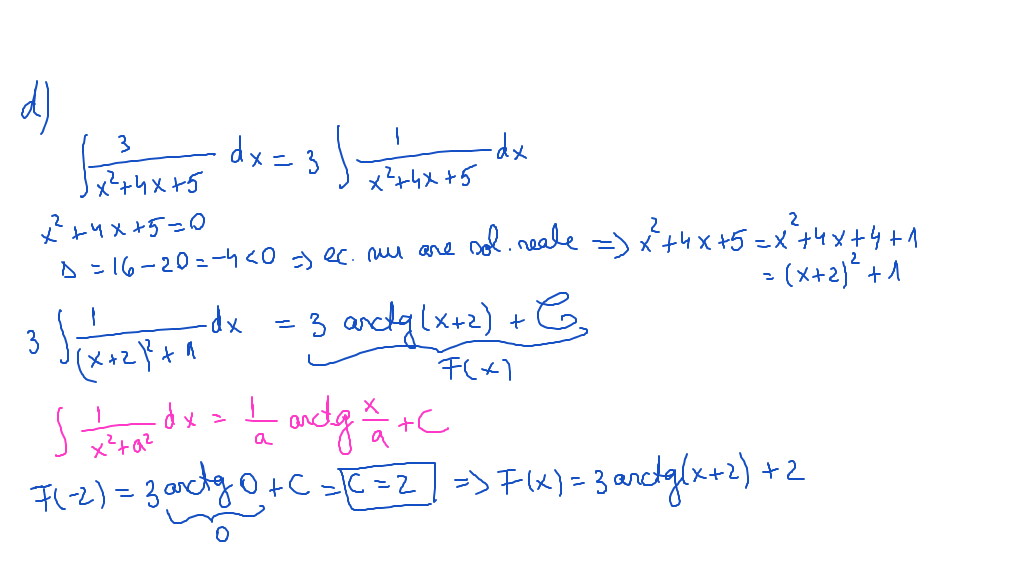 d)
∫ 3/(x²+4x+5) dx = 3 ∫ 1/(x²+4x+5) dx
x²+4x+5=0
Δ = 16-20 = -4 < 0 => ec. nu are sol. reale => x²+4x+5 = x²+4x+4+1
= (x+2)²+1
3 ∫ 1/((x+2)²+1) dx = 3 arctg(x+2) + C
F(x)
∫ 1/(x²+a²) dx = 1/a arctg x/a + C
F(-2) = 3 arctg 0 + C = C = 2 => F(x) = 3 arctg(x+2) + 2
0